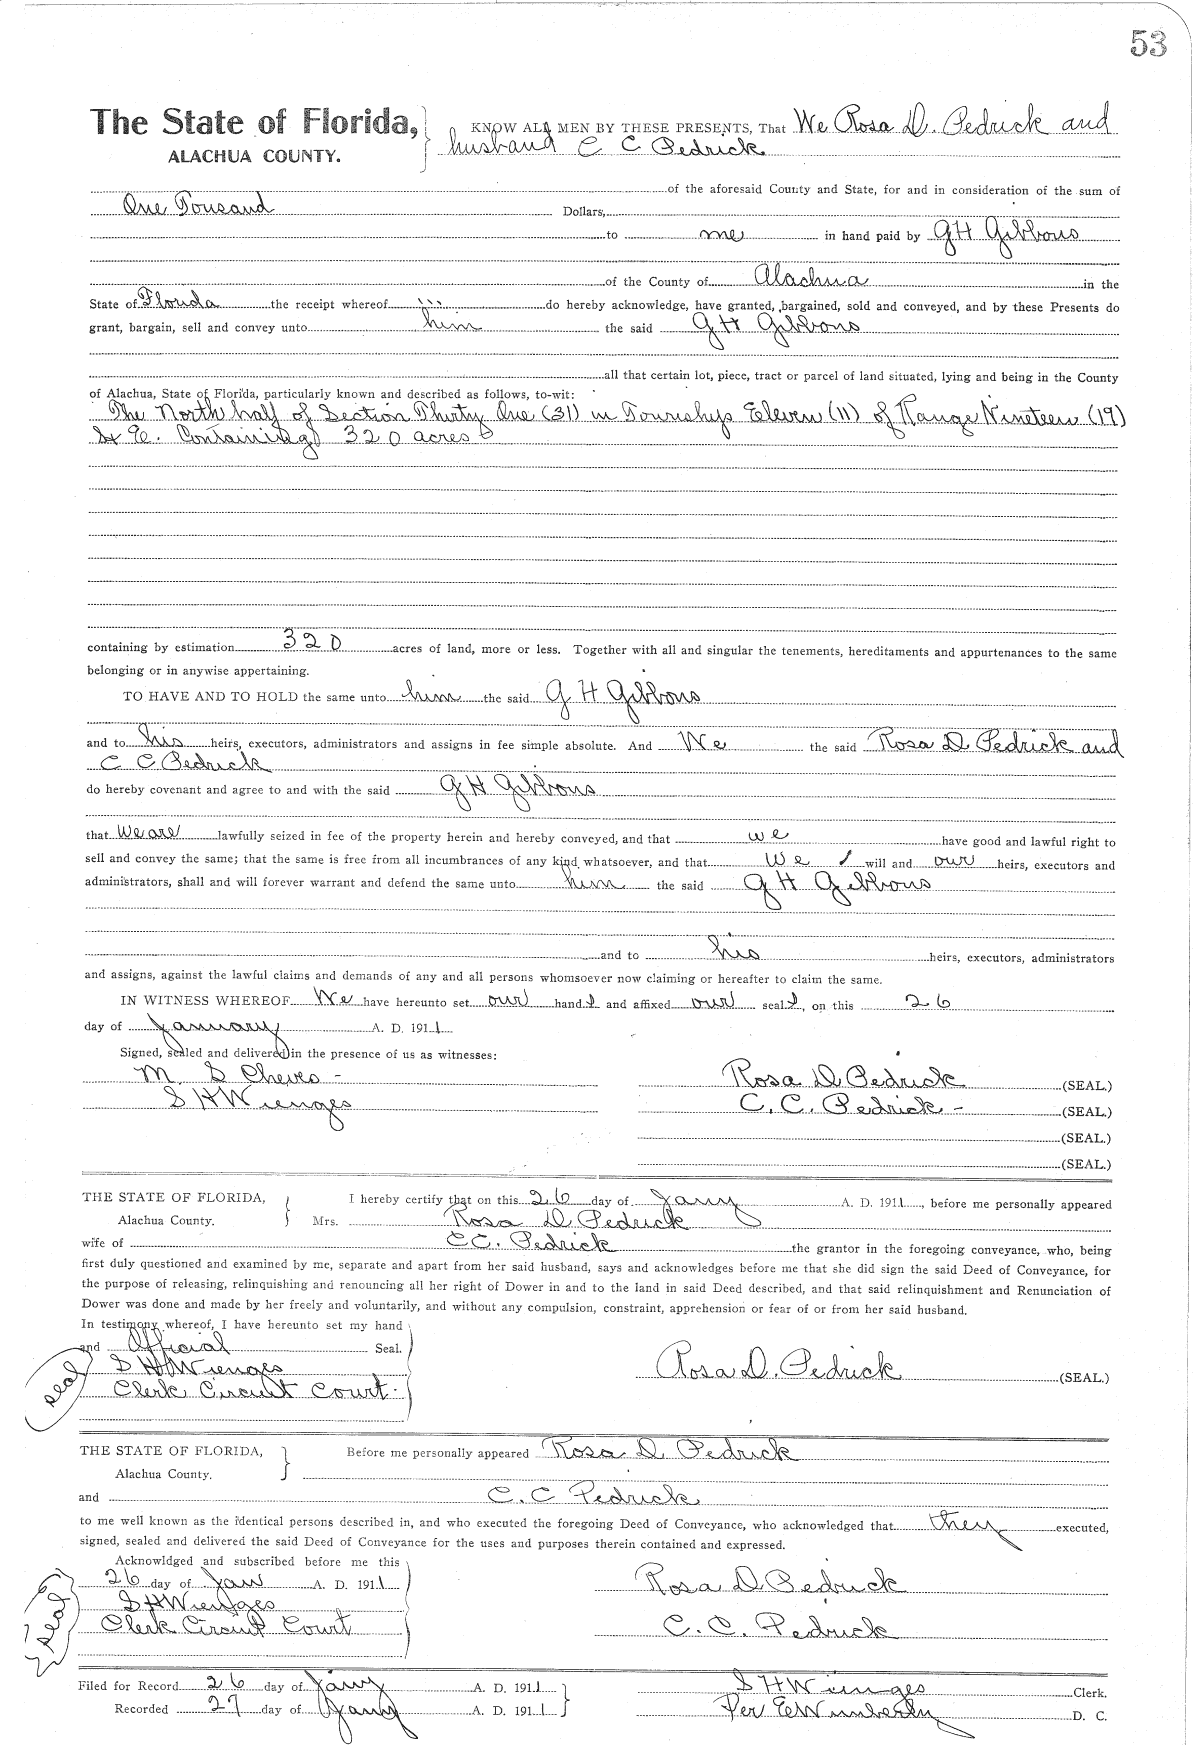 53
The State of Florida,
ALACHUA COUNTY.
KNOW ALL MEN BY THESE PRESENTS, That We Rosa D. Pedrick and
husband C C Pedrick
of the aforesaid County and State, for and in consideration of the sum of
One Tousand Dollars,
to me in hand paid by G H Gibbons
of the County of Alachua in the
State of Florida the receipt whereof do hereby acknowledge, have granted, bargained, sold and conveyed, and by these Presents do
grant, bargain, sell and convey unto him the said G H Gibbons
all that certain lot, piece, tract or parcel of land situated, lying and being in the County
of Alachua, State of Florida, particularly known and described as follows, to-wit:
The North half of Section Thirty One (31) in Townships Eleven (11) of Range Nineteen (19)
S & E. Containing 320 acres
containing by estimation 320 acres of land, more or less. Together with all and singular the tenements, hereditaments and appurtenances to the same
belonging or in anywise appertaining.
TO HAVE AND TO HOLD the same unto him the said G H Gibbons
and to his heirs, executors, administrators and assigns in fee simple absolute. And We the said Rosa D Pedrick and
C C Pedrick
do hereby covenant and agree to and with the said G H Gibbons
that We are lawfully seized in fee of the property herein and hereby conveyed, and that we have good and lawful right to
sell and convey the same; that the same is free from all incumbrances of any kind whatsoever, and that We will and our heirs, executors and
administrators, shall and will forever warrant and defend the same unto him the said G H Gibbons
and to his heirs, executors, administrators
and assigns, against the lawful claims and demands of any and all persons whomsoever now claiming or hereafter to claim the same.
IN WITNESS WHEREOF We have hereunto set our hand s and affixed our seal s, on this 26
day of January A. D. 1911
Signed, sealed and delivered in the presence of us as witnesses:
M S Cheves - Rosa D Pedrick (SEAL.)
S H Wienges C. C. Pedrick - (SEAL.)
(SEAL.)
(SEAL.)
THE STATE OF FLORIDA, I hereby certify that on this 26 day of Jany A. D. 1911, before me personally appeared
Alachua County. Mrs. Rosa D Pedrick
wife of C C. Pedrick the grantor in the foregoing conveyance, who, being
first duly questioned and examined by me, separate and apart from her said husband, says and acknowledges before me that she did sign the said Deed of Conveyance, for
the purpose of releasing, relinquishing and renouncing all her right of Dower in and to the land in said Deed described, and that said relinquishment and Renunciation of
Dower was done and made by her freely and voluntarily, and without any compulsion, constraint, apprehension or fear of or from her said husband.
In testimony whereof, I have hereunto set my hand
and Official Seal.
S H Wienges Rosa D. Pedrick (SEAL.)
seal Clerk Circuit Court.
THE STATE OF FLORIDA, Before me personally appeared Rosa D Pedrick
Alachua County.
and C. C Pedrick
to me well known as the identical persons described in, and who executed the foregoing Deed of Conveyance, who acknowledged that they executed,
signed, sealed and delivered the said Deed of Conveyance for the uses and purposes therein contained and expressed.
Acknowldged and subscribed before me this
26 day of Jan A. D. 1911 Rosa D Pedrick
S H Wienges
seal Clerk Circuit Court C. C. Pedrick
Filed for Record 26 day of Jany A. D. 1911 S H Wienges Clerk.
Recorded 27 day of Jany A. D. 1911 Per E W Wimberly D. C.